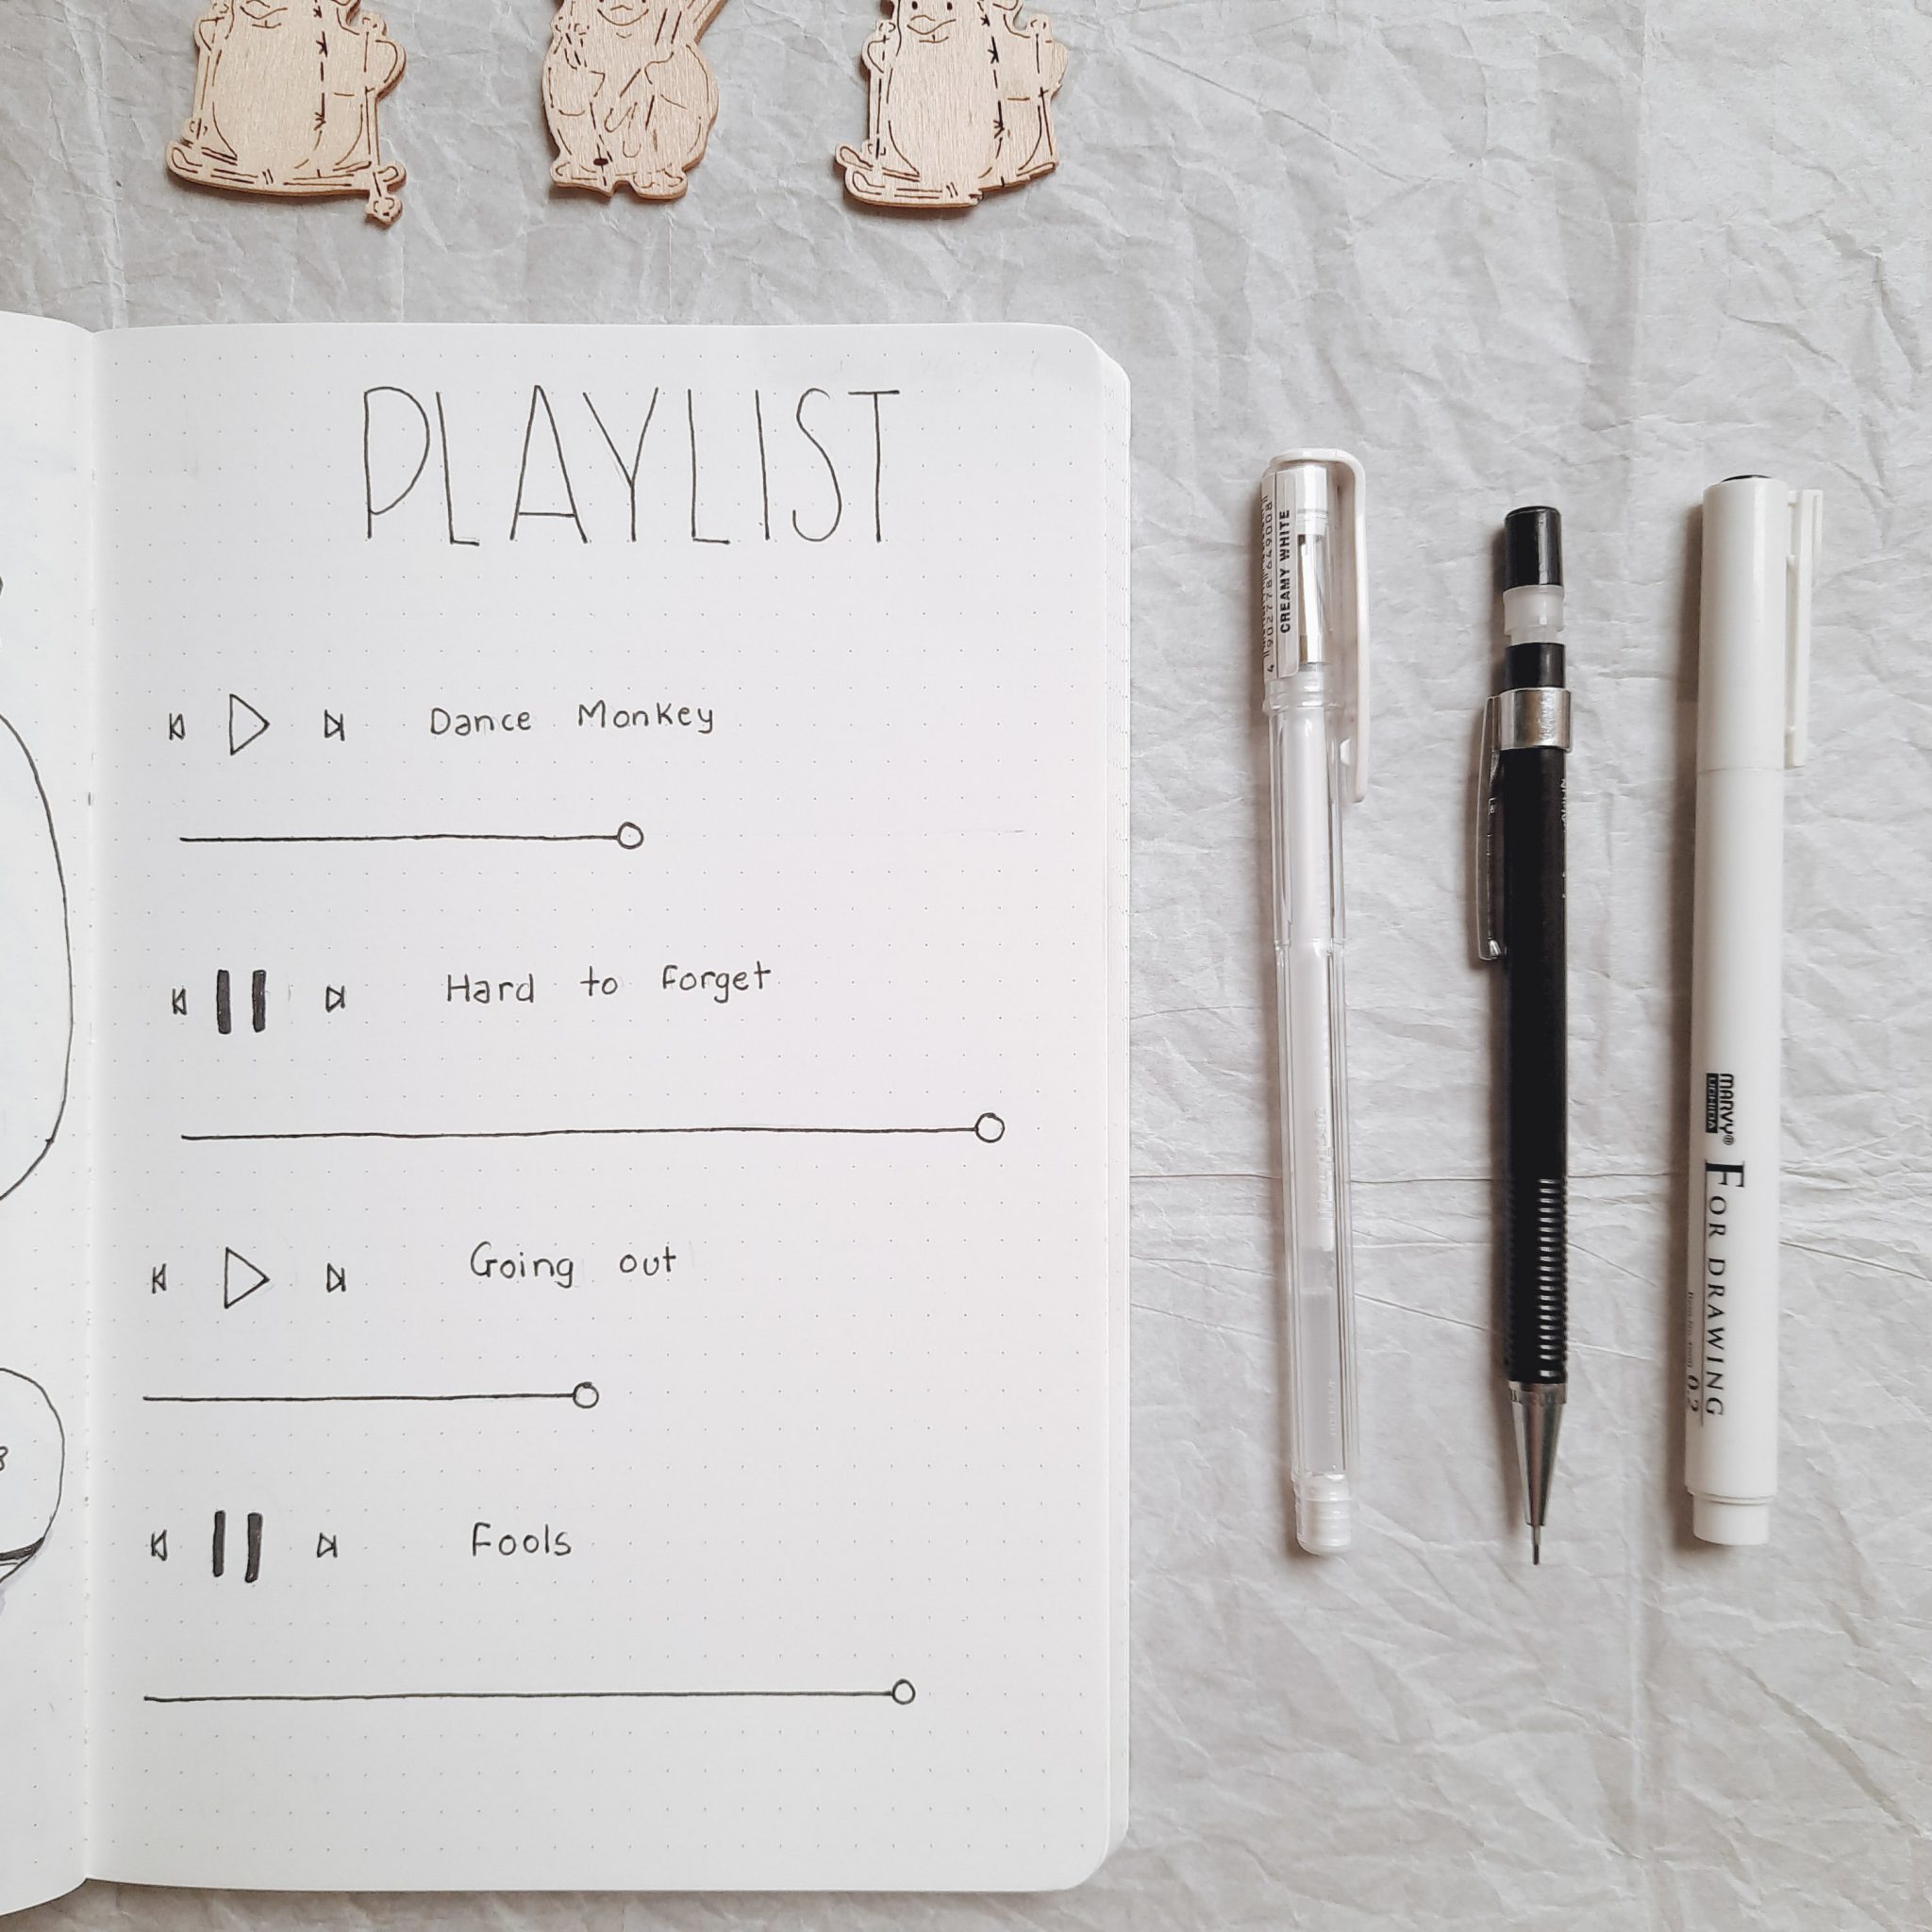 PLAYLIST
Dance Monkey
Hard to Forget
Going out
Fools
4 902778 649008
CREAMY WHITE
MARVY®
UCHIDA
FOR DRAWING
0.2